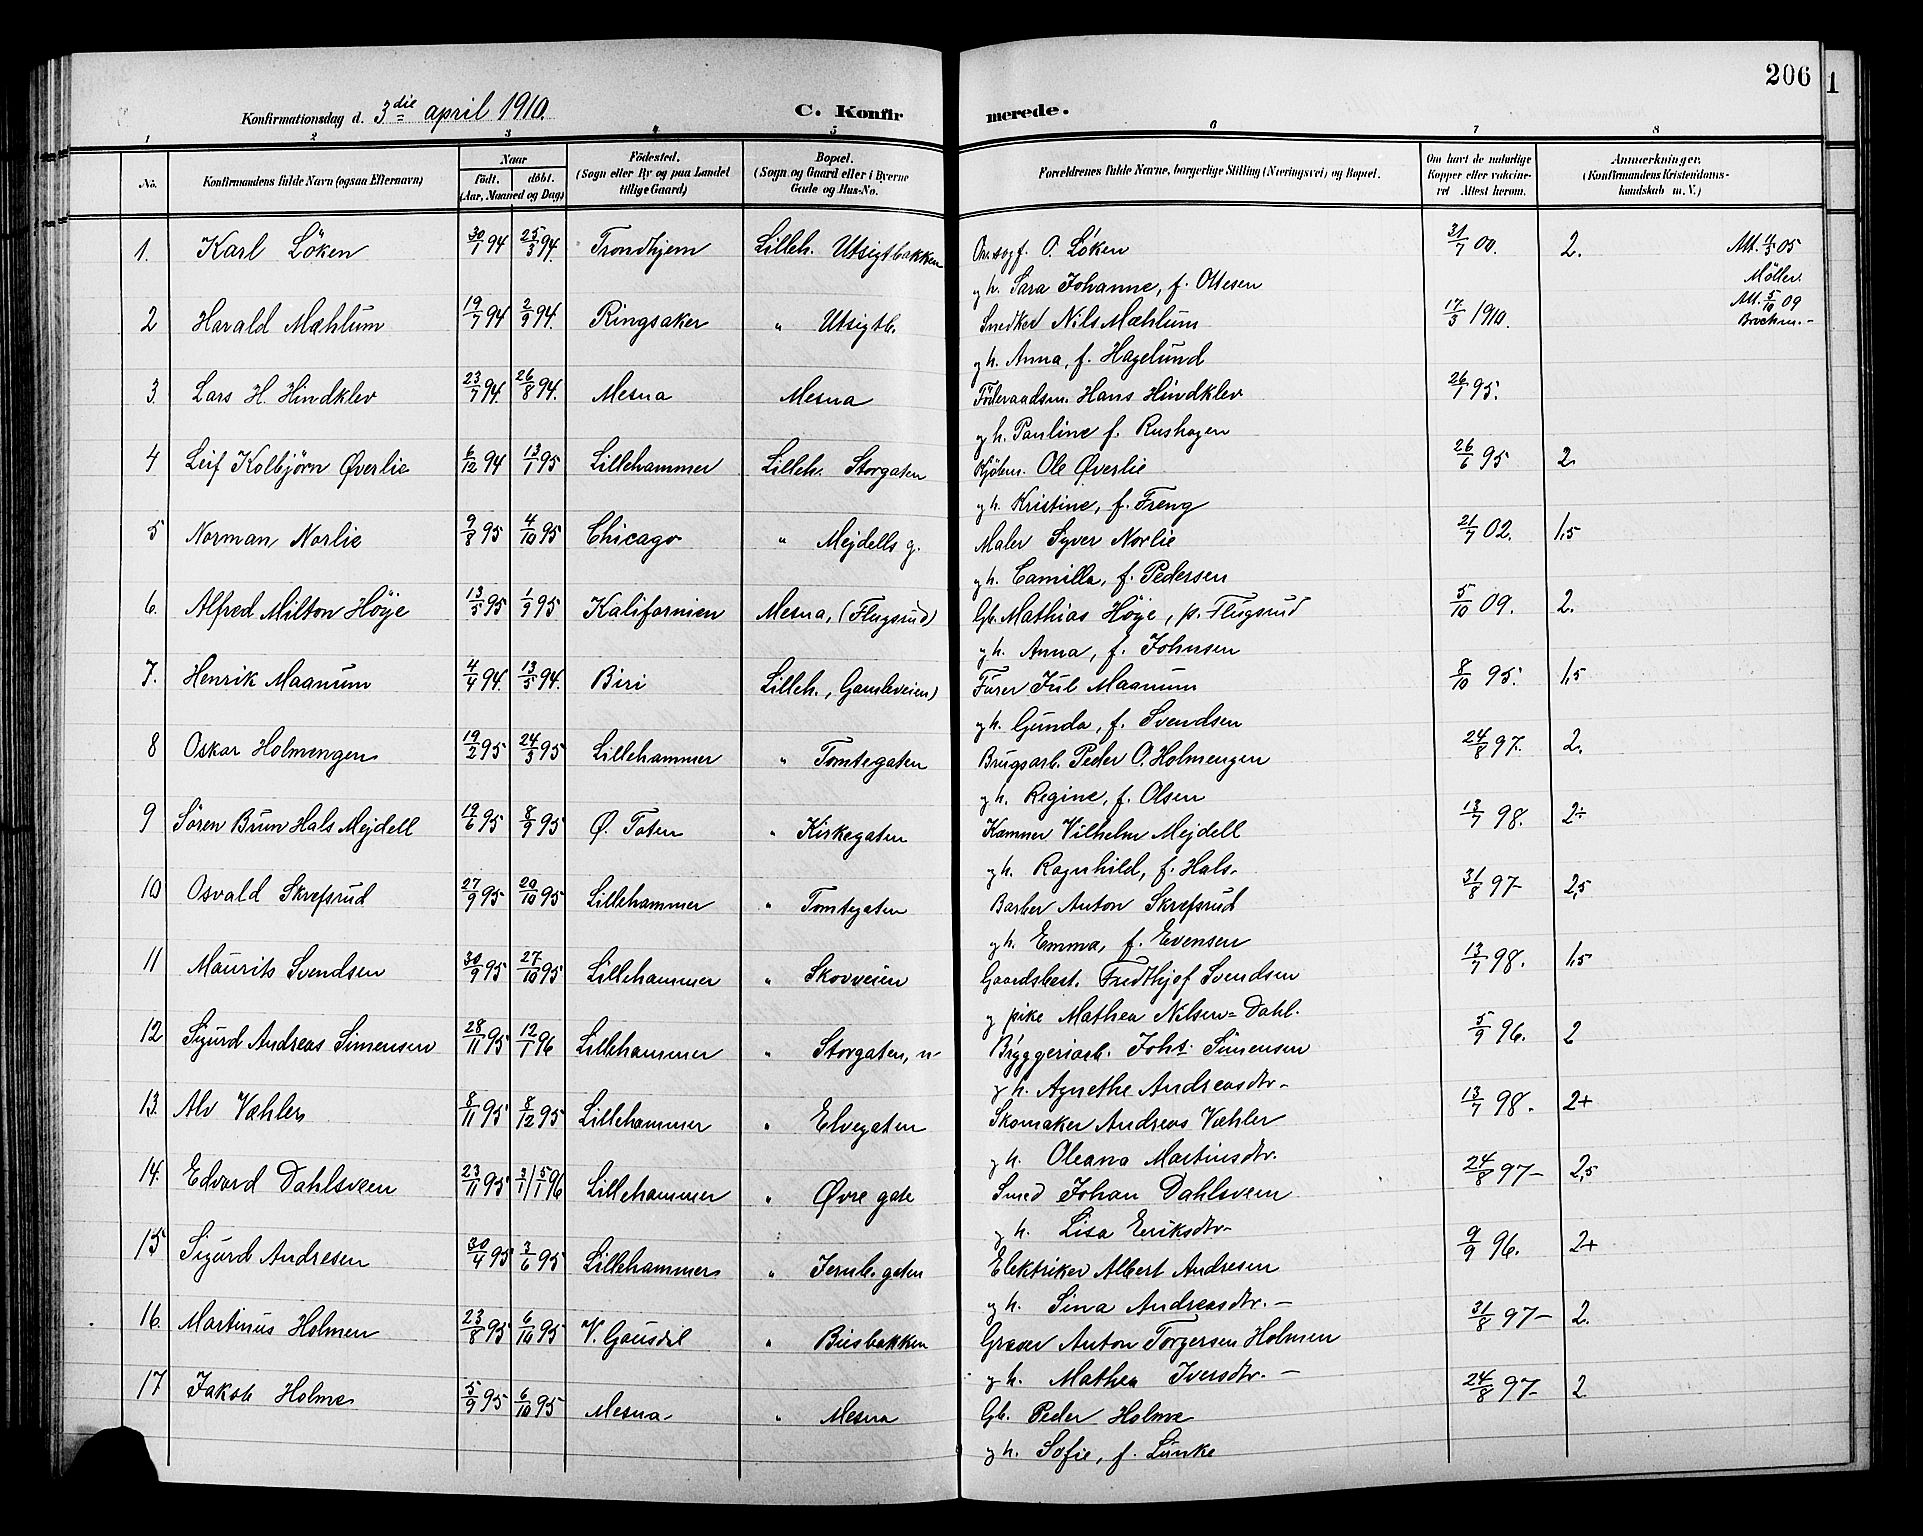 206
1
Konfirmationsdag d. 3die april 1910. C. Konfirmerede.
1 2 3 4 5 6 7 8
No. Konfirmandens fulde Navn (ogsaa Efternavn) Naar født. døbt. (Aar, Maaned og Dag) Födested. (Sogn eller By og paa Landet tillige Gaard) Bopæl. (Sogn og Gaard eller i Byerne Gade og Hus-No. Forældrenes fulde Navne, borgerlige Stilling (Næringsvei) og Bopæl. Om havt de naturlige Kopper eller vakcineret Attest herom. Anmerkninger. (Konfirmandens Kristendomskundskab m. V.)
1. Karl Löken 30/1 94 25/3 94. Trondhjem Lilleh. Utsigtbakken O. Løken 31/7 00. 2. Att. 05
gh. Sara Johanne, f. Ottesen Möller.
2 Harald Mæhlum 19/7 94 2/9 94. Ringsaker " Utsigtb. Snedker Nils Mæhlum 17/3 1910. Att. 5/10 09
gh. Anna, f. Hagelund
3. Lars H. Hindklev 23/7 94. 26/8 94. Mesna Mesna Föderaadsm. Hans Hindklev 26/1 95.
gh. Pauline f. Rushagen
4 Leif Kolbjörn Øverlie 6/12 94 13/1 95 Lillehammer Lilleh. Storgaten Kjöbm. Ole Øverlie 26/6 95 2.
gh. Kristine, f. Freng
5 Norman Norlie 9/8 95 4/10 95 Chicago " Mejdells g. Maler Syver Norlie 21/7 02. 1,5
gh. Camilla, f. Pedersen
6. Alfred Milton Höye 13/5 95 1/9 95 Kalifornien Mesna, (Flugsrud) Gb. Mathias Höye, p. Flugsrud 5/10 09. 2.
gh. Anna, f. Johnsen
7. Henrik Maanum 4/4 94. 13/5 94. Biri Lilleh., Gamleveien) Furer Jul Maanum 8/10 95. 1,5
gh. Gunda, f. Svendsen
8 Oskar Holmengen 19/2 95 24/3 95 Lillehammer " Tomtegaten Brugsarb. Peder O. Holmengen 24/8 97. 2.
gh. Regine, f. Olsen
9 Sören Brun Hals Mejdell 19/6 95 8/9 95 Ø. Toten " Kirkegaten Kæmner Vilhelm Mejdell 13/7 98. 2÷
gh. Ragnhild, f. Hals.
10 Osvald Skrefsrud 27/9 95 20/10 95 Lillehammer " Tomtegaten Barber Anton Skrefsrud 31/8 97- 2,5
gh. Emma, f. Evensen
11 Maurits Svendsen 30/9 95 27/10 95 Lillehammer " Skovveien Gaardsbest. Fredthjof Svendsen 13/7 98. 1,5
g pike Mathea Nilsen-Dahl.
12 Sigurd Andreas Simensen 28/11 95 12/1 96 Lillehammer " Storgaten, n- Bryggeriarb. Johs. Simensen 5/9 96. 2
gh. Agnethe Andreasdtr-
13. Alv Væhler 8/11 95 8/12 95 Lillehammer " Elvegaten Skomaker Andreas Væhler 13/7 98. 2+
gh. Oleana Martinsdtr.
14. Edvard Dahlsveen 23/11 95 5/1 96 Lillehammer " Øvre gate Smed Johan Dahlsveen 24/8 97- 2,5
gh. Lisa Eriksdtr-
15 Sigurd Andresen 30/4 95 3/6 95 Lillehammer " Jernb. gaten Elektriker Albert Andresen 9/9 96. 2+
gh. Sina Andreasdtr.-
16. Martinus Holmen 23/8 95 6/10 95 V. Gausdal " Busbakken Graver Anton Torgersen Holmen 31/8 97- 2.
gh. Mathea Iversdtr.-
17 Jakob Holme 5/9 95 6/10 95 Mesna " Mesna Gb. Peder Holme 24/8 97- 2
gh. Sofie, f. Lunke